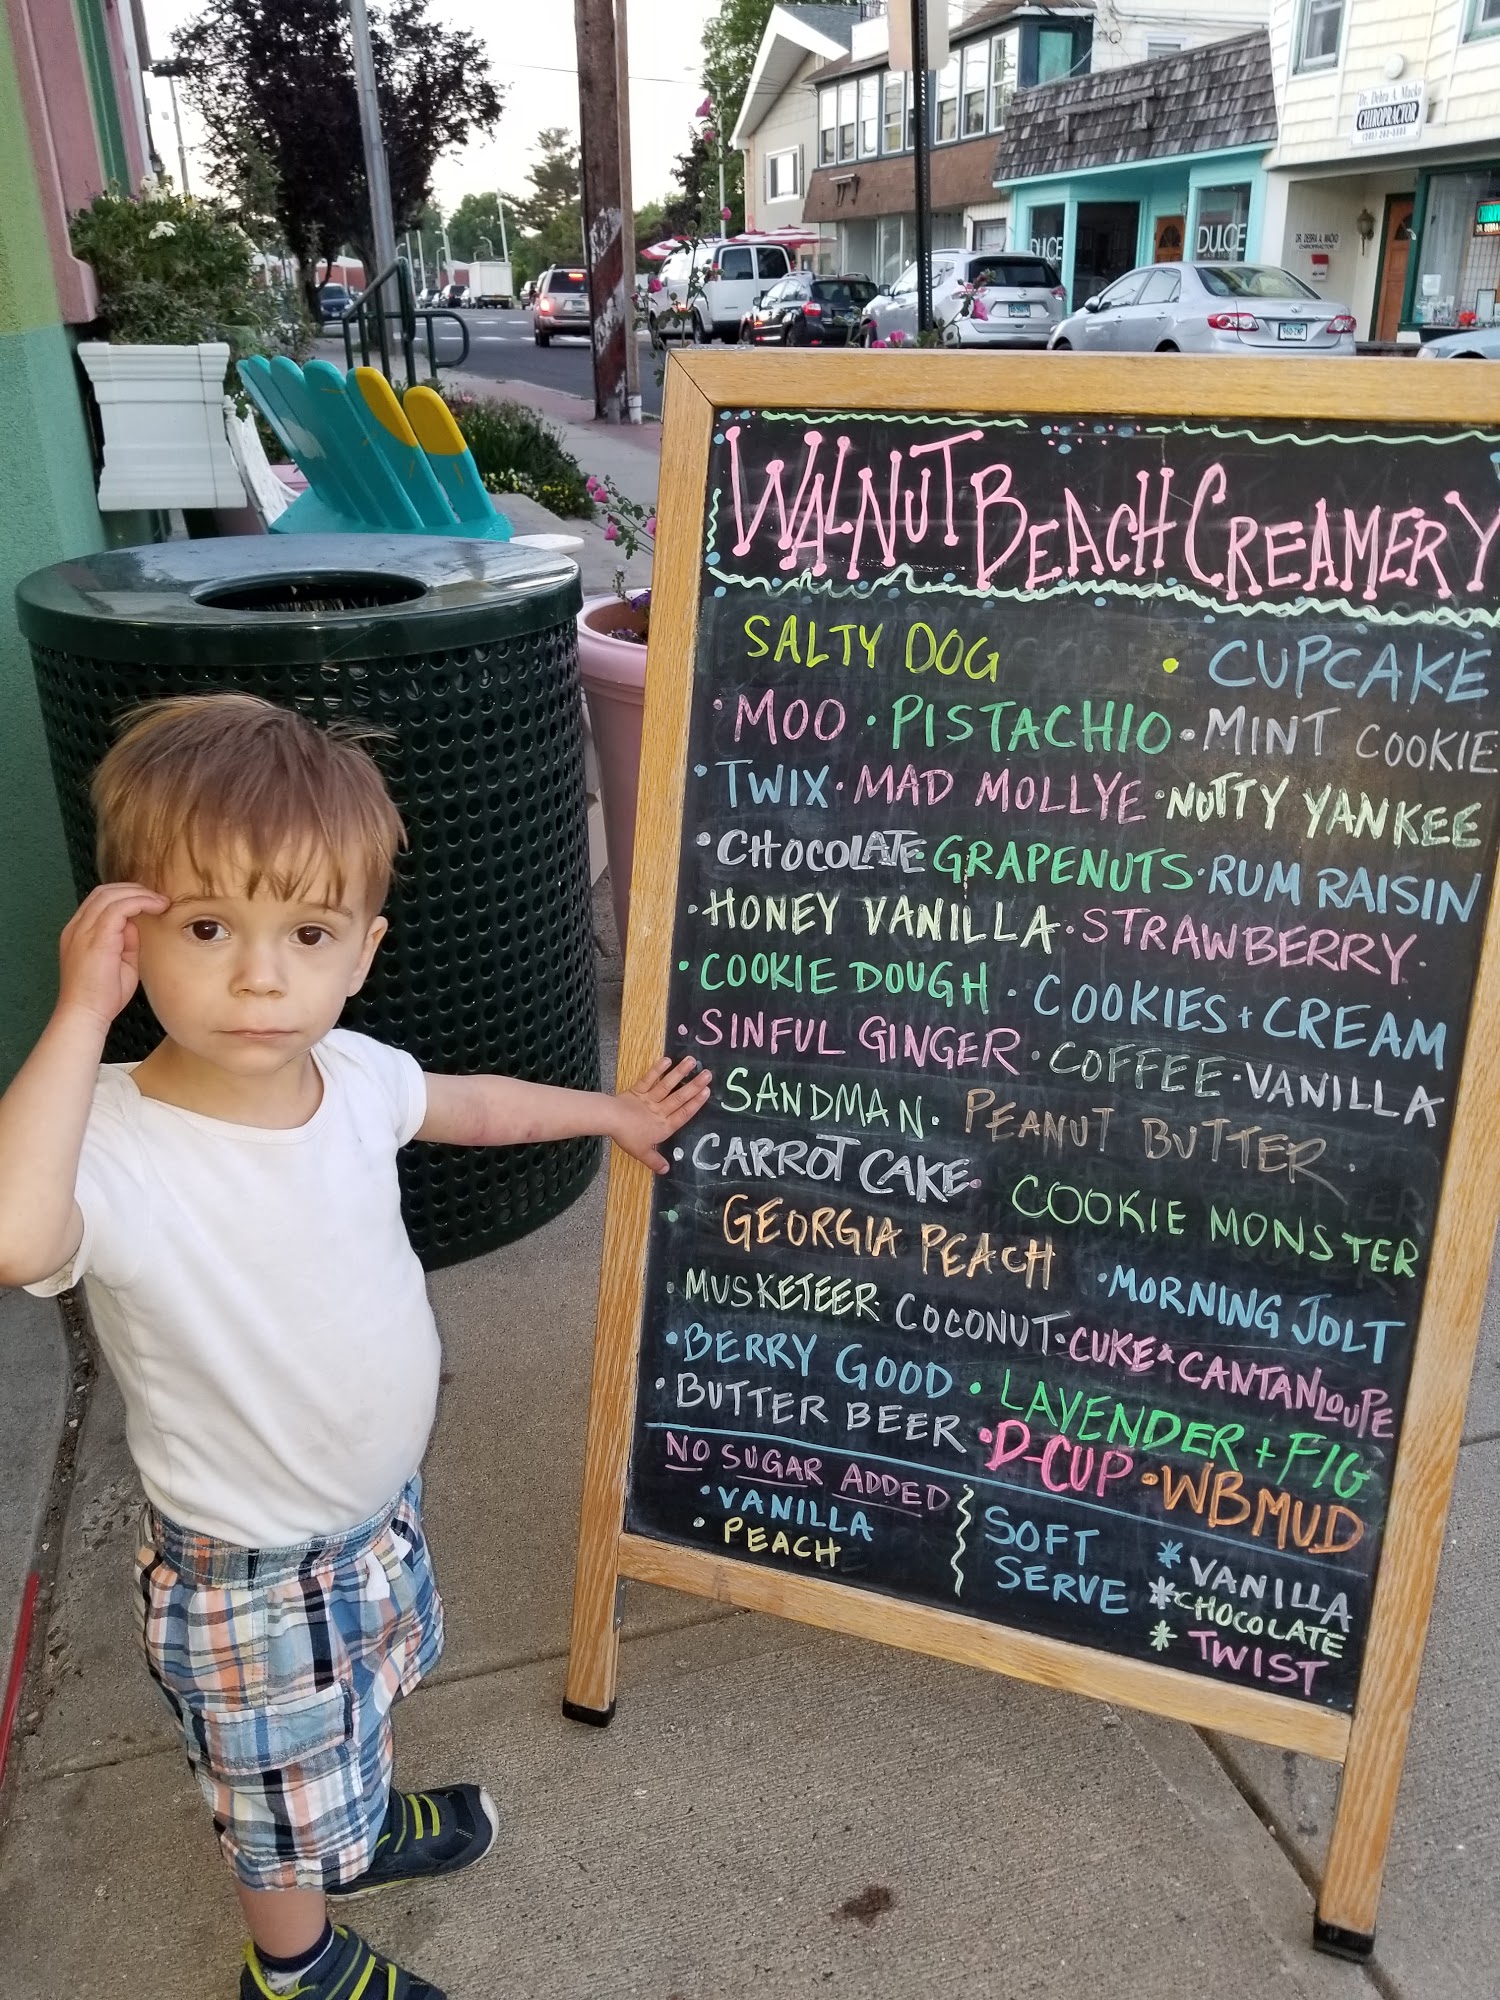 Dr. Debra A. Macko
CHIROPRACTOR
DR. DEBRA A. MACKO
CHIROPRACTOR
DULCE
DULCE
WALNUT BEACH CREAMERY
SALTY DOG • CUPCAKE
• MOO • PISTACHIO • MINT COOKIE
• TWIX • MAD MOLLYE • NUTTY YANKEE
• CHOCOLATE • GRAPENUTS • RUM RAISIN
• HONEY VANILLA • STRAWBERRY •
• COOKIE DOUGH • COOKIES + CREAM
• SINFUL GINGER • COFFEE • VANILLA
SANDMAN • PEANUT BUTTER •
• CARROT CAKE • COOKIE MONSTER
• GEORGIA PEACH • MORNING JOLT
• MUSKETEER • COCONUT • CUKE & CANTANLOUPE
• BERRY GOOD • LAVENDER + FIG
• BUTTER BEER • D-CUP • WBMUD
NO SUGAR ADDED
• VANILLA
• PEACH
SOFT
SERVE
* VANILLA
* CHOCOLATE
* TWIST